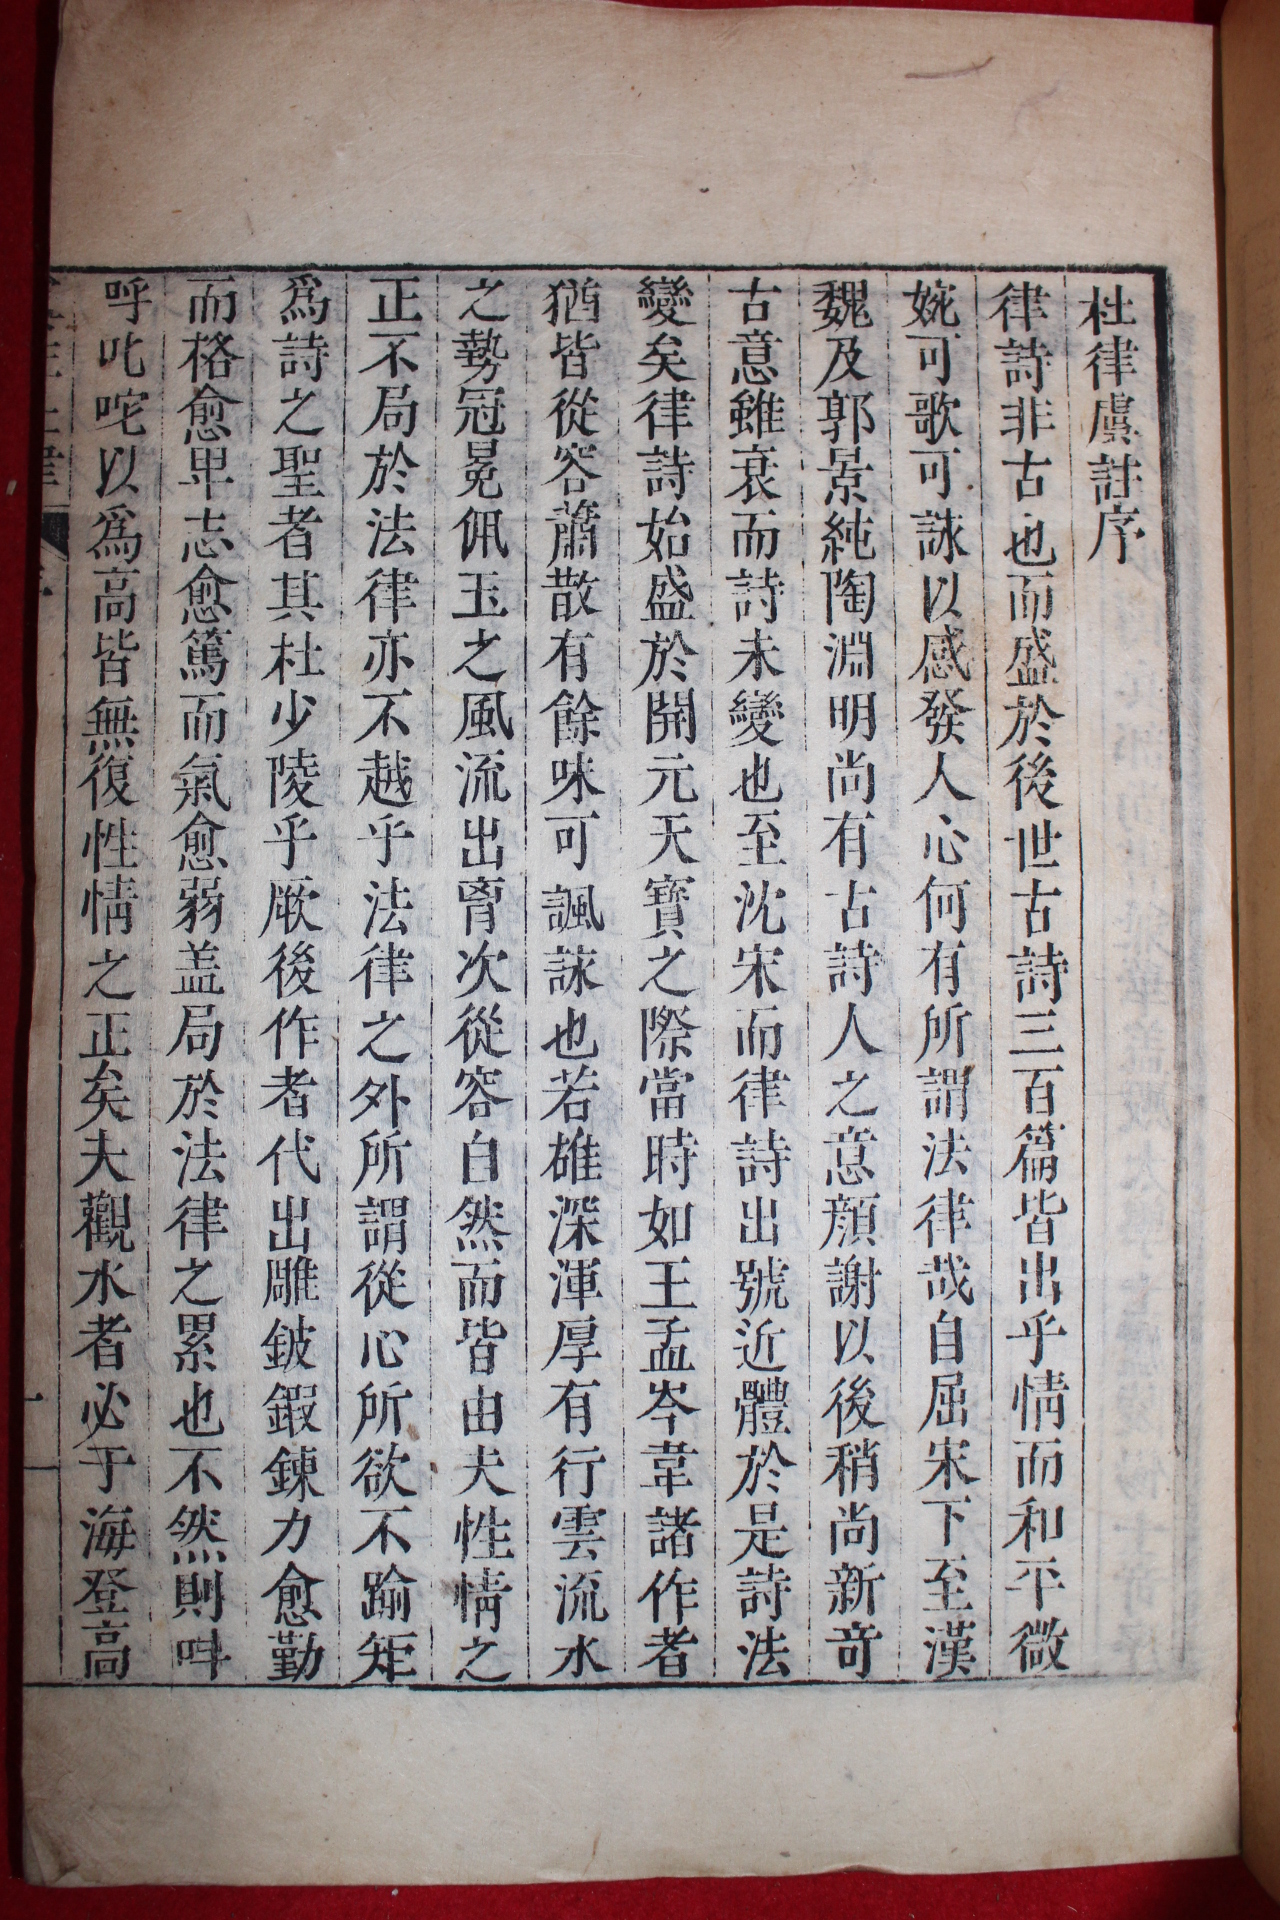 杜律虞註序
律詩非古也而盛於後世古詩三百篇皆出乎情而和平微
婉可歌可詠以感發人心何有所謂法律哉自屈宋下至漢
魏及郭景純陶淵明尚有古詩人之意顔謝以後稍尚新奇
古意雖衰而詩未變也至沈宋而律詩出號近體於是詩法
變矣律詩始盛於開元天寶之際當時如王孟岑韋諸作者
猶皆從容蕭散有餘味可諷詠也若雄深渾厚有行雲流水
之勢冠冕佩玉之風流出胷次從容自然而皆由夫性情之
正不局於法律亦不越乎法律之外所謂從心所欲不踰矩
為詩之聖者其杜少陵乎厥後作者代出雕鈹鍜鍊力愈勤
而格愈卑志愈篤而氣愈弱盖局於法律之累也不然則叫
呼叱咤以爲高皆無復性情之正矣夫觀水者必于海登高